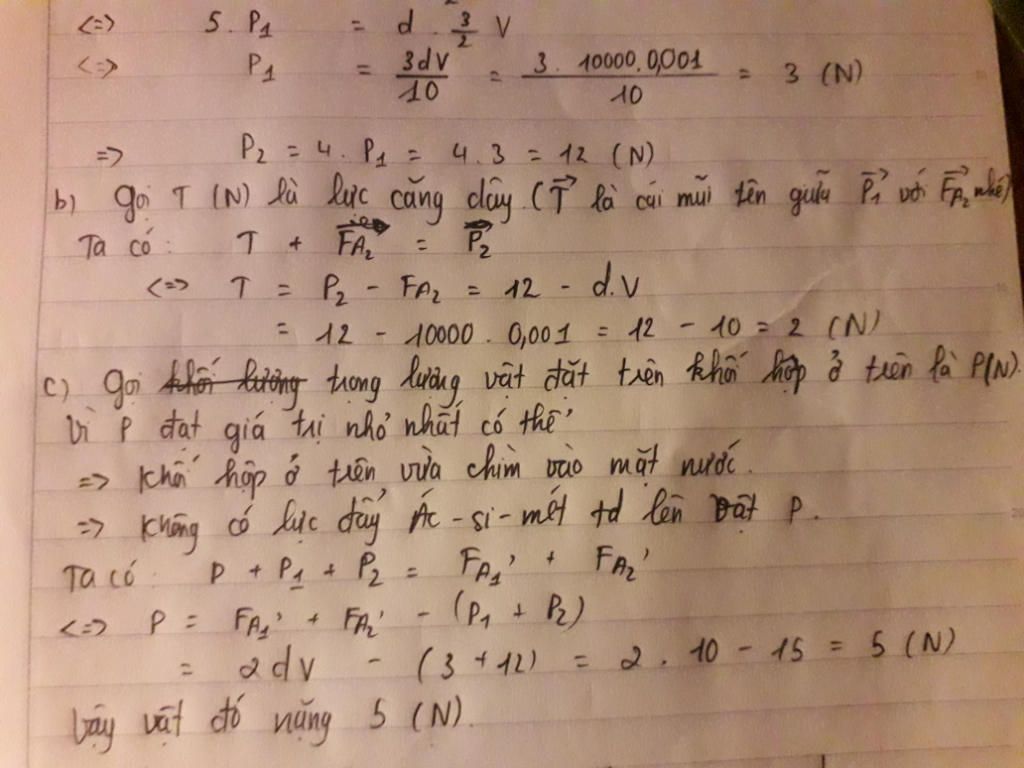 <=> 5. P₁ = d . 3/2 V
<=> P₁ = 3dV/10 = 3. 10000. 0,001/10 = 3 (N)
=> P₂ = 4. P₁ = 4. 3 = 12 (N)
b) Gọi T (N) là lực căng dây. (T⃗ là cái mũi tên giữa P₁⃗ với F⃗A₂ nhé)
Ta có: T + FA₂ = P₂
<=> T = P₂ - FA₂ = 12 - d.V
= 12 - 10000. 0,001 = 12 - 10 = 2 (N)
c) Gọi khối lượng trọng lượng vật đặt trên khối hộp ở trên là P(N).
Vì P đạt giá trị nhỏ nhất có thể
=> Khối hộp ở trên vừa chìm vào mặt nước.
=> Không có lực đẩy Ác-si-mét td lên vật P.
Ta có: P + P₁ + P₂ = FA₁' + FA₂'
<=> P = FA₁' + FA₂' - (P₁ + P₂)
= 2dV - (3 + 12) = 2. 10 - 15 = 5 (N)
Vậy vật đó nặng 5 (N).